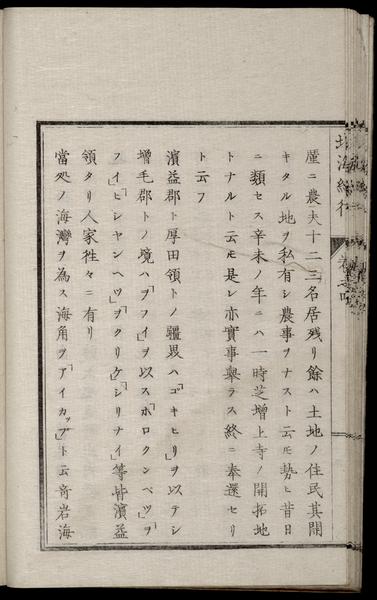 厪ニ農夫十二三名居残リ餘ハ土地ノ住民其開
キタル地ヲ私有シ農事ヲナスト云𪜈勢ヒ昔日
ニ類セス辛未ノ年ニハ一時芝増上寺ノ開拓地
トナルト云𪜈是レ亦實事舉ラス終ニ奉還セリ
ト云フ
濱益郡ト厚田領トノ疆界ハ「ゴキヒリ」ヲ以テシ
増毛郡トノ境ハ「ヲフイ」ヲ以ス「ホロクンベツ」「ヲ
フイ」「ヒシヤンベツ」「ヲクリケ」「シリナイ」等皆濱益
領タリ人家往々ニ有リ
當処ノ海灣ヲ為ス海角ヲ「アイカップ」ト云奇岩海